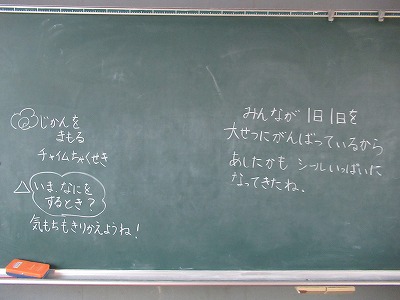 じかんを
まもる
チャイムちゃくせき
いま、なにを
するとき?
気もちもきりかえようね!
みんなが 1日1日を
大せつにがんばっているから
あしたかも シールいっぱいに
なってきたね。